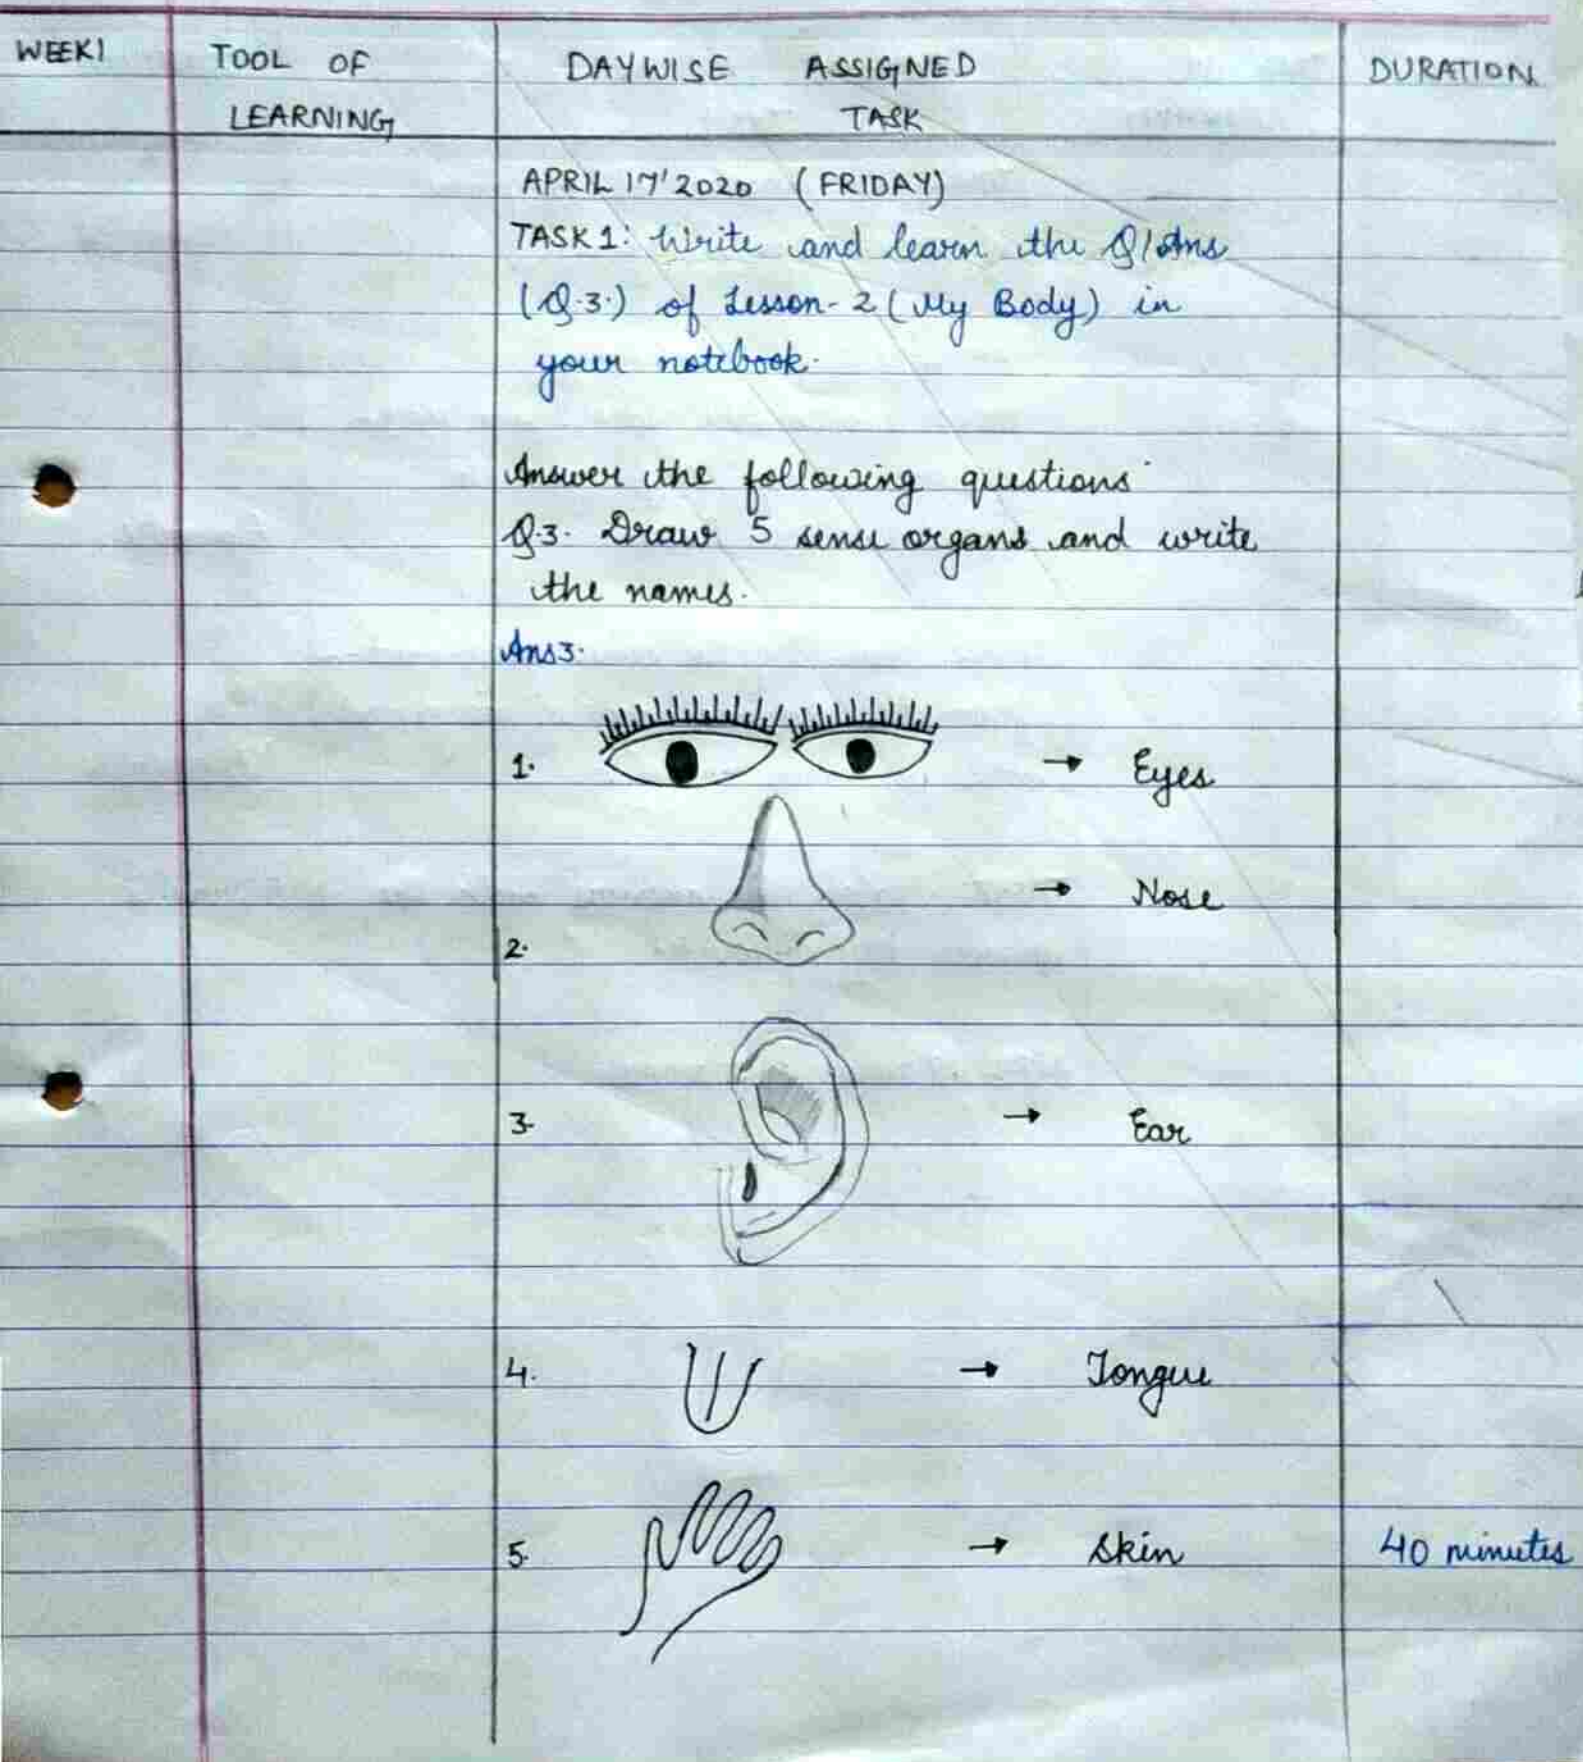 WEEK1 TOOL OF DAYWISE ASSIGNED DURATION
LEARNING TASK
APRIL 17'2020 (FRIDAY)
TASK 1: Write and learn the Q/Ans
(Q.3.) of Lesson-2 (My Body) in
your notebook.
Answer the following questions
Q.3. Draw 5 sense organs and write
the names.
Ans3.
1. → Eyes
→ Nose
2.
3. → Ear
4. → Tongue
5. → Skin 40 minutes